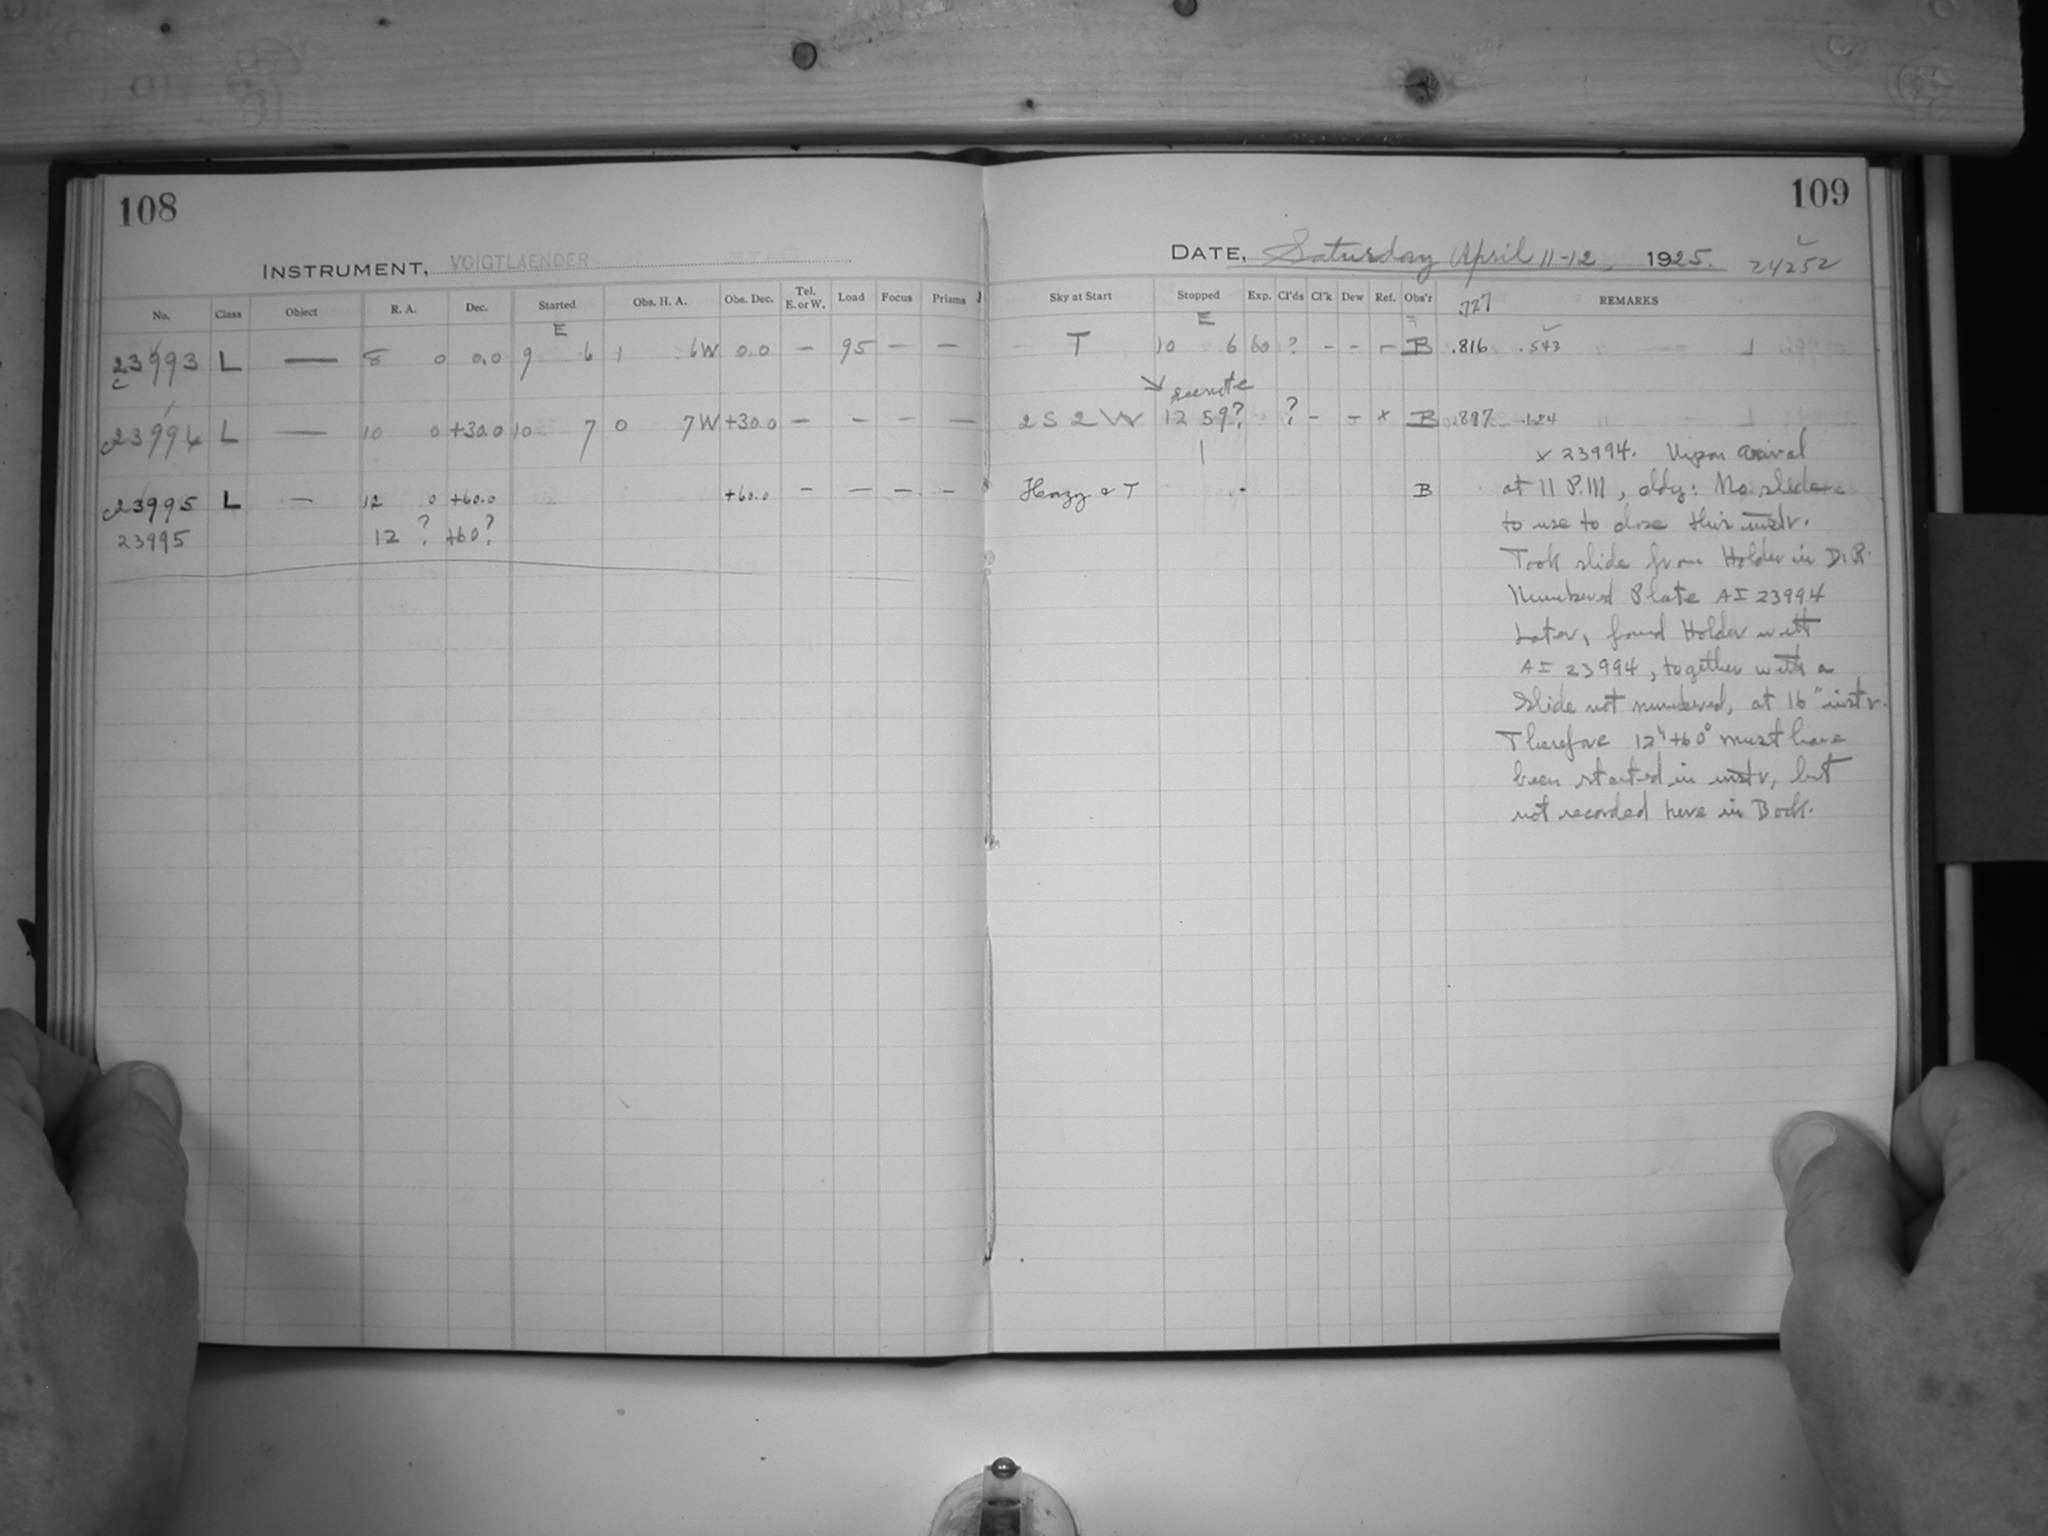 108
109
INSTRUMENT, VOIGTLAENDER
DATE, Saturday April 11-12, 1925. 24252
No. Class Object R. A. Dec. Started Obs. H. A. Obs. Dec. Tel. E. or W. Load Focus Prisms
Sky at Start Stopped Exp. Cl'ds Cl'k Dew Ref. Obs'r .727 REMARKS
E E
23993 L — 8 0 0.0 9 6 1 6W 0.0 — 95 — — T 10 6 60 ? - - - B .816 .543
c
c23994 L — 10 0 +30.0 10 7 0 7W +30.0 — — — — 2S 2W 12 59? ? - - x B .124
1
c23995 L — 12 0 +60.0 +60.0 — — — — Hazy & T B
23995 12 ? +60?
x 23994. Upon arrival
at 11 P.M, cldy: No slide
to use to close this instr.
Took slide from Holder in D.R.
Numbered Plate AI 23994
Later, found Holder with
AI 23994, together with a
slide not numbered, at 16" instr.
Therefore 12ʰ+60° must have
been started in instr, but
not recorded here in Book.